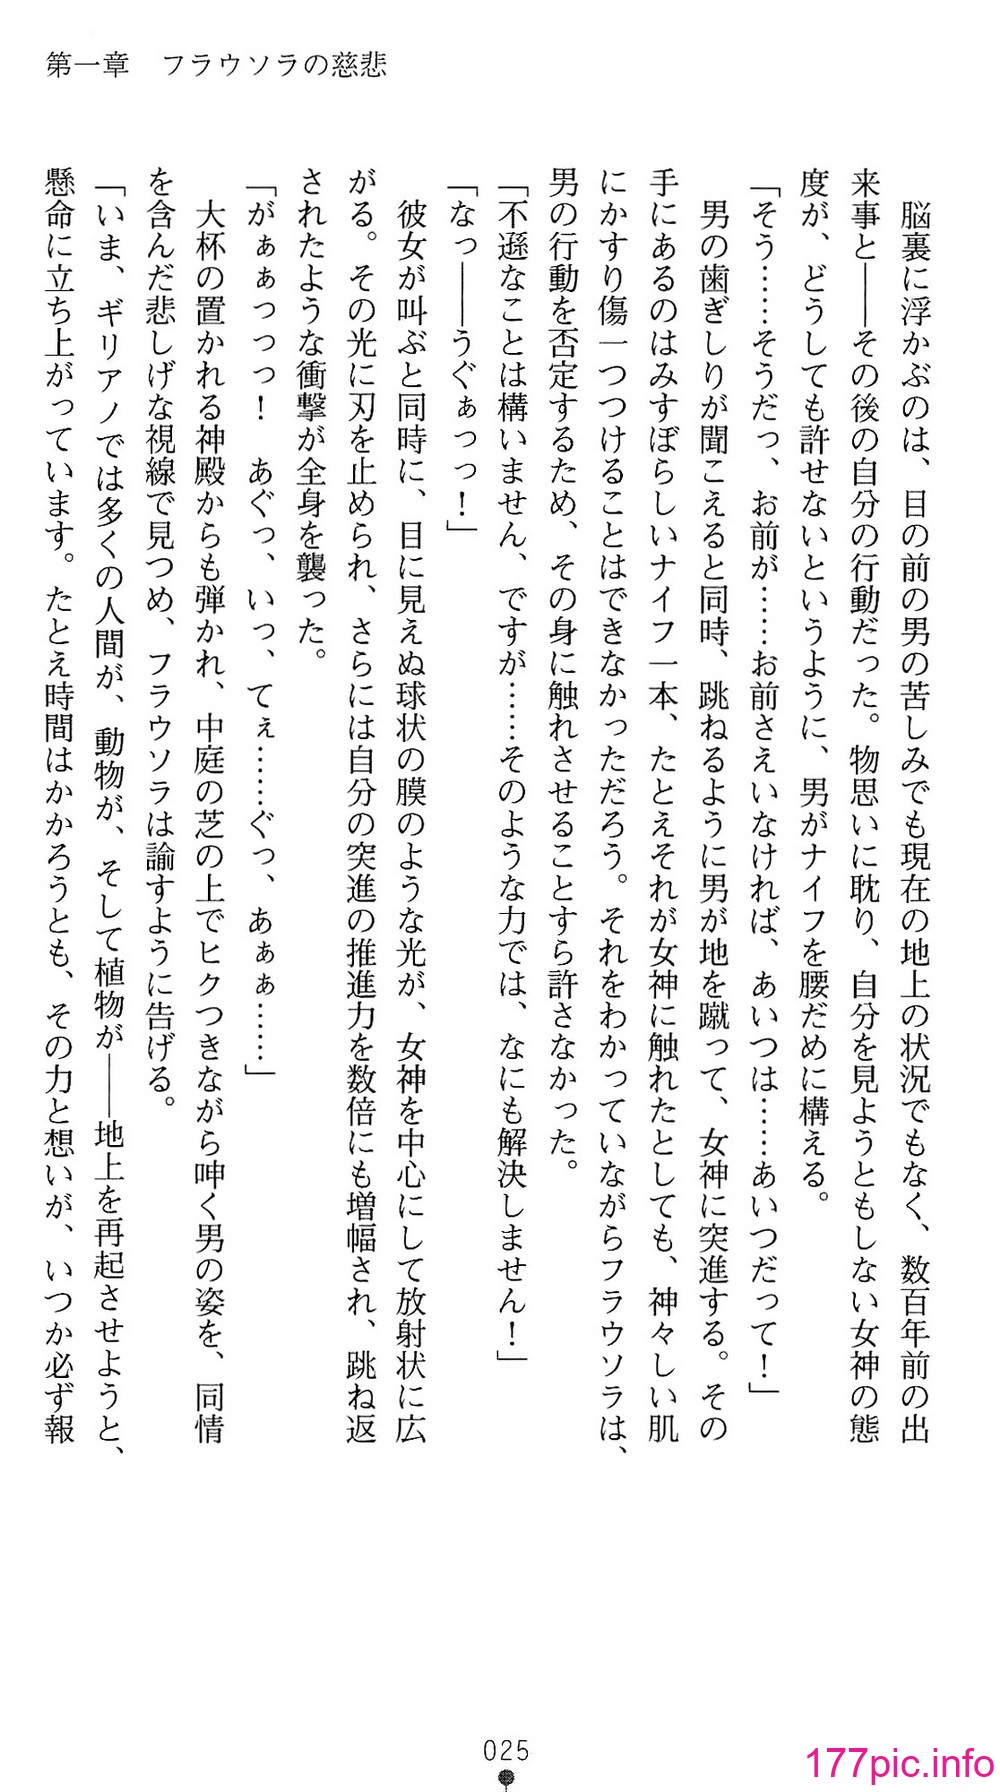 第一章　フラウソラの慈悲
　脳裏に浮かぶのは、目の前の男の苦しみでも現在の地上の状況でもなく、数百年前の出
来事と――その後の自分の行動だった。物思いに耽り、自分を見ようともしない女神の態
度が、どうしても許せないというように、男がナイフを腰だめに構える。
「そう……そうだっ、お前が……お前さえいなければ、あいつは……あいつだって！」
　男の歯ぎしりが聞こえると同時、跳ねるように男が地を蹴って、女神に突進する。その
手にあるのはみすぼらしいナイフ一本、たとえそれが女神に触れたとしても、神々しい肌
にかすり傷一つつけることはできなかっただろう。それをわかっていながらフラウソラは、
男の行動を否定するため、その身に触れさせることすら許さなかった。
「不遜なことは構いません、ですが……そのような力では、なにも解決しません！」
「なっ――うぐぁっっ！」
　彼女が叫ぶと同時に、目に見えぬ球状の膜のような光が、女神を中心にして放射状に広
がる。その光に刃を止められ、さらには自分の突進の推進力を数倍にも増幅され、跳ね返
されたような衝撃が全身を襲った。
「がぁぁっっっ！　あぐっ、いっ、てぇ……ぐっ、あぁぁ……」
　大杯の置かれる神殿からも弾かれ、中庭の芝の上でヒクつきながら呻く男の姿を、同情
を含んだ悲しげな視線で見つめ、フラウソラは諭すように告げる。
「いま、ギリアノでは多くの人間が、動物が、そして植物が――地上を再起させようと、
懸命に立ち上がっています。たとえ時間はかかろうとも、その力と想いが、いつか必ず報
025
177pic.info